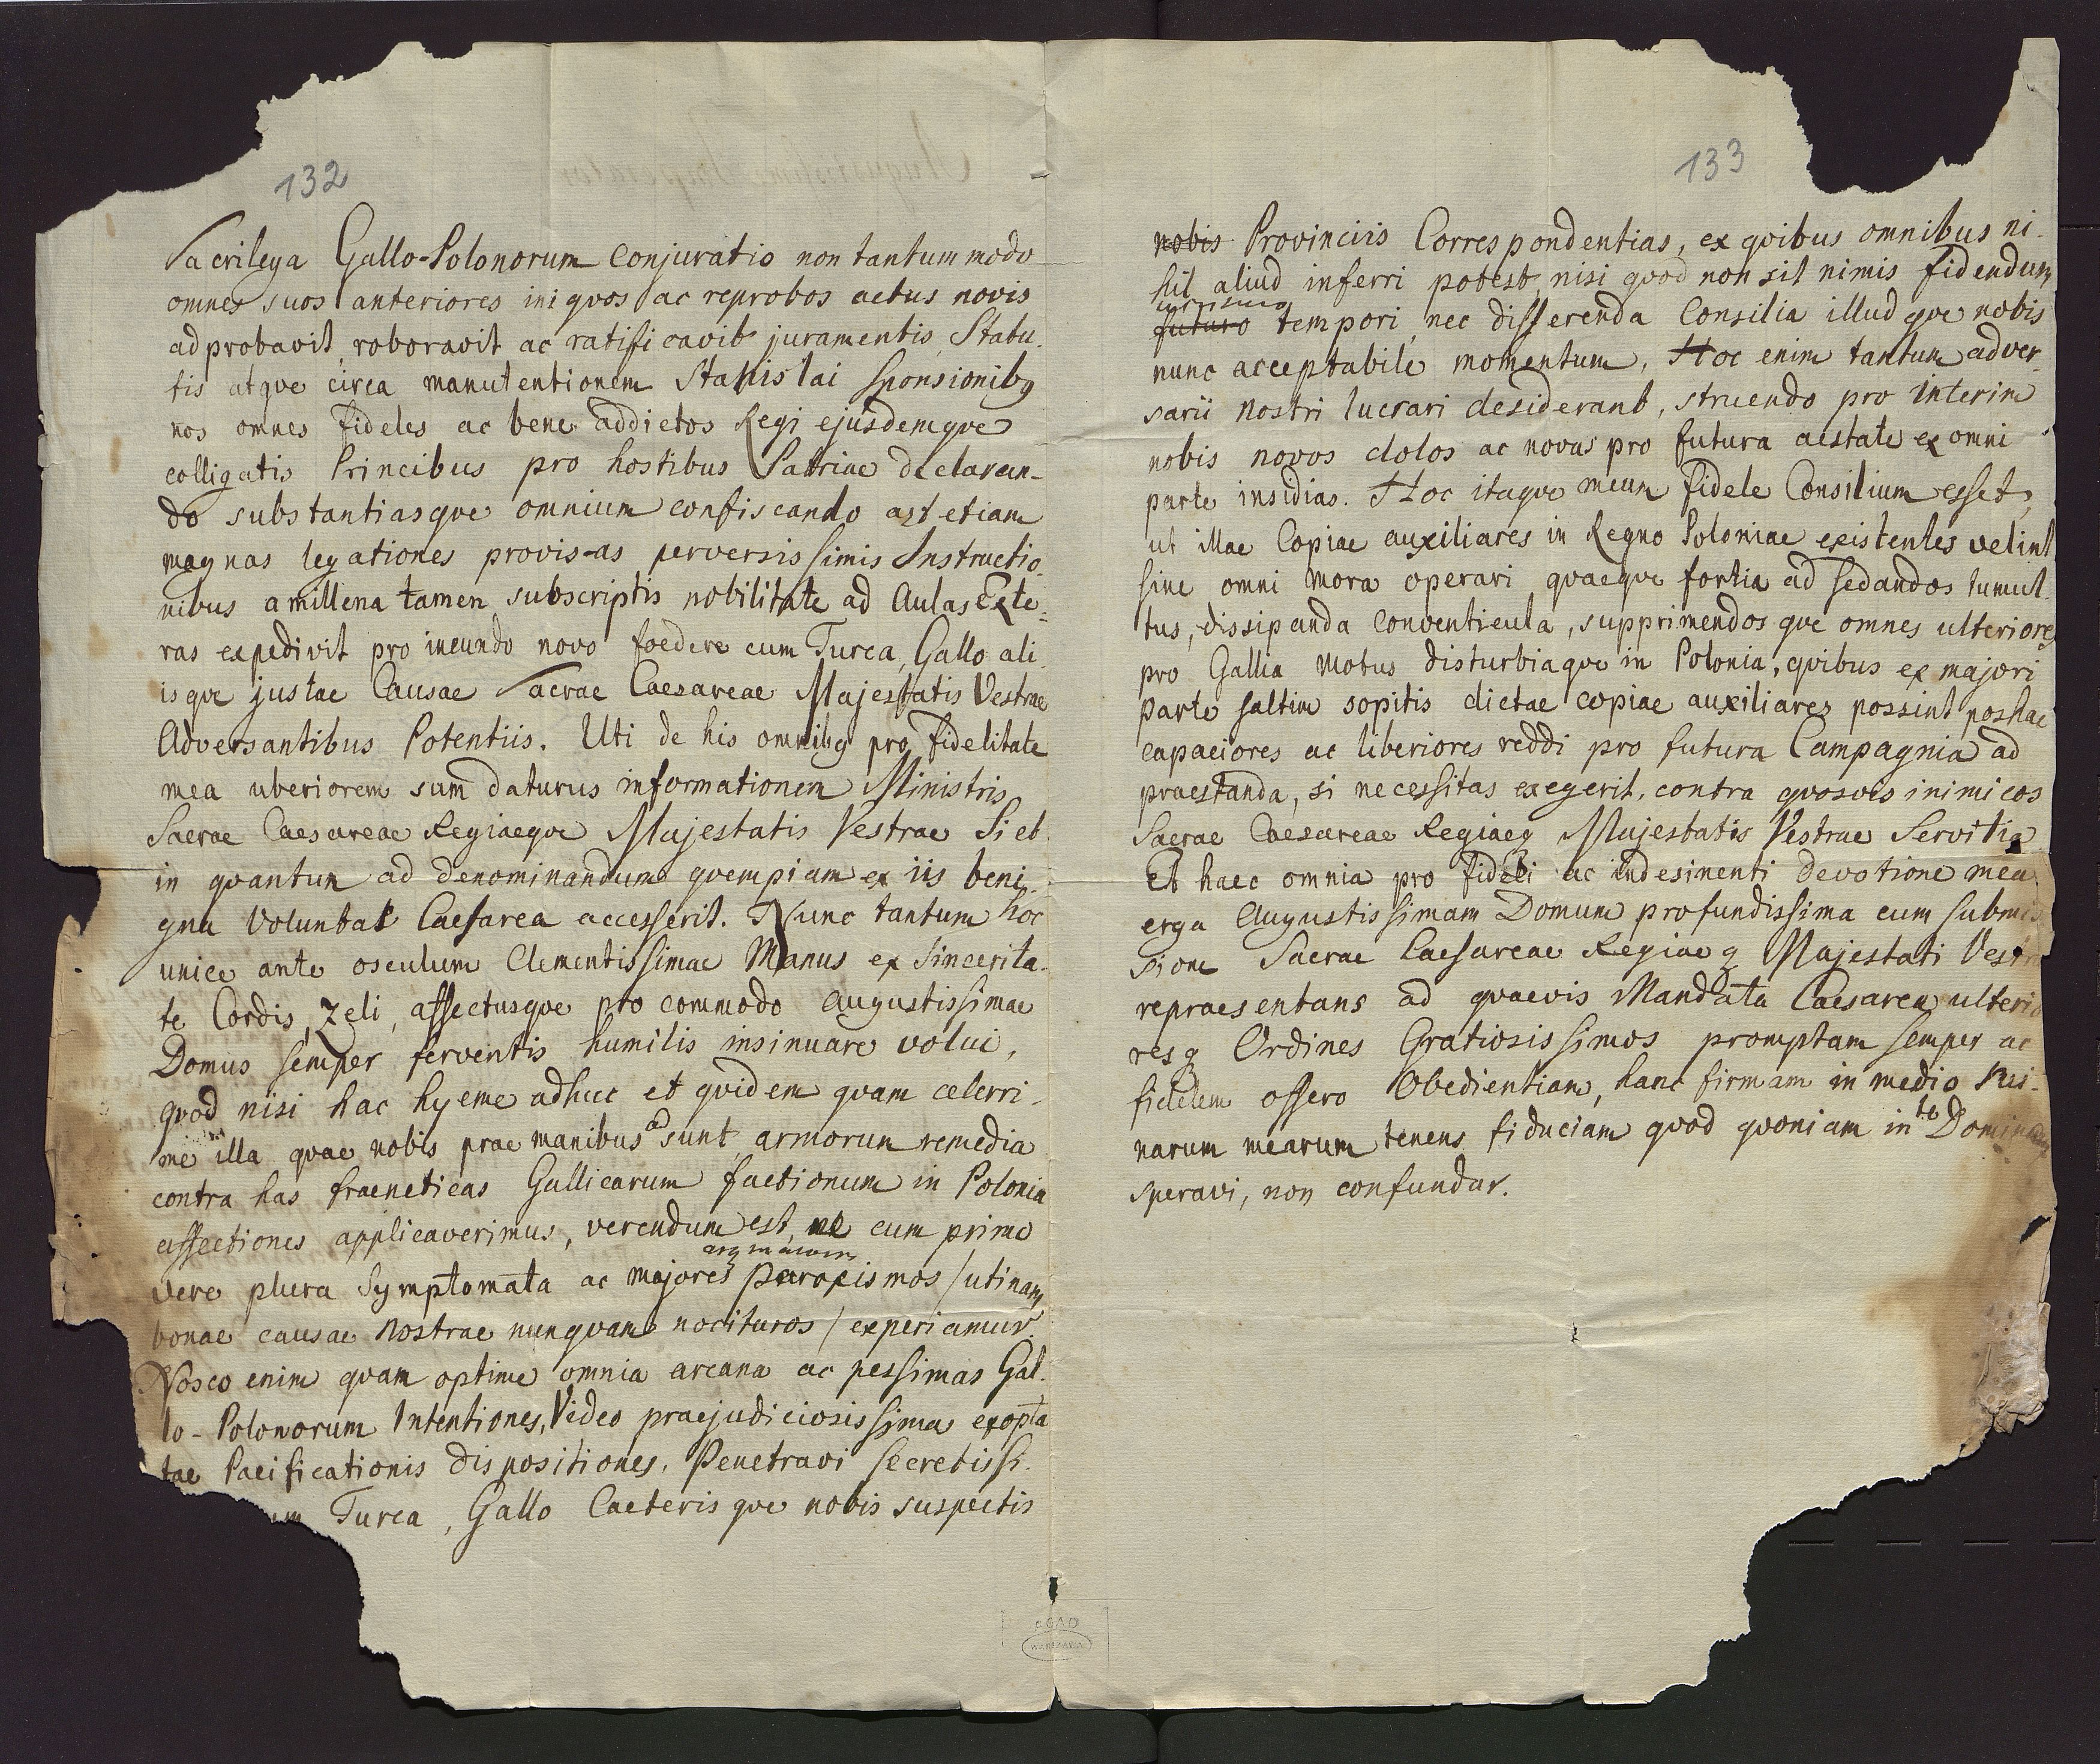 132
Sacrilega Gallo-Polonorum conjuratio non tantummodo
omnes suos anteriores iniqvos ac reprobos actus novis
adprobavit, roboravit ac ratificavit juramentis, Statu-
tis atqve circa manutentionem Stanislai Sponsionibq
nos omnes fideles ac bene addictos Regi ejusdemqve
colligatis Princibus pro hostibus Patriae declaran-
do substantiasqve omnium confiscando ast etiam
magnas legationes provisas perversissimis Instructio-
nibus a millena tamen subscriptis nobilitate ad Aulas Exte-
ras expedivit pro ineundo novo foedere cum Turca, Gallo ali-
isqve justae Causae Sacrae Caesareae Majestatis Vestrae
Adversantibus Potentiis. Uti de his omnibq pro fidelitate
mea uberiorem sum daturus informationem Ministris
Sacrae Caesareae Regiaeqve Majestatis Vestrae Si et
in qvantum ad denominandum qvempiam ex iis beni-
gna Voluntas Caesarea accesserit. Nunc tantum hoc
unice ante osculum Clementissimae Manus ex Sincerita-
te Cordis, Zeli, affectusqve pro commodo Augustissimae
Domus semper ferventis humilis insinuare volui,
qvod nisi hac hyeme adhuc et qvidem qvam celerri-
me illa qvae nobis prae manibus ad sunt armorum remedia
contra has fraeneticas Gallicarum factionum in Polonia
affectiones applicaverimus, verendum est, ne cum primo
vere plura Symptomata ac majores paroxismos / utinam
bonae causae Nostrae nunqvam nocituros / experiamur.
Nosco enim qvam optime omnia arcana ac pessimas Gal-
lo-Polonorum Intentiones, Video praejudiciosissimas exopta
tae Pacificationis dispositiones, Penetravi secretissi-
um Turca, Gallo Caeterisqve nobis suspectis
133
nobis Provinciis Correspondentias, ex qvibus omnibus ni-
hil aliud inferri potest, nisi qvod non sit nimis fidendum
futuro tempori, nec differenda Consilia illudqve nobis
nunc acceptabile momentum, Hoc enim tantum adver-
sarii nostri lucrari desiderant, struendo pro interim
nobis novos dolos ac novas pro futura aestate ex omni
parte insidias. Hoc itaqve meum fidele Consilium esset,
ut illae Copiae auxiliares in Regno Poloniae existentes velint
sine omni mora operari qvaeqve fortia ad sedandos tumul-
tus, dissipanda Conventicula, supprimendosqve omnes ulteriores
pro Gallia Motus disturbiaqve in Polonia, qvibus ex majori
parte saltim sopitis dictae copiae auxiliares possint poshac
capaciores ac liberiores reddi pro futura Campagnia ad
praestanda, si necessitas exegerit, contra qvosvis inimicos
Sacrae Caesareae Regiaeq Majestatis Vestrae Servitia
Et haec omnia pro fideli ac indesinenti devotione mea
erga Augustissimam Domum profundissima cum submis
sione Sacrae Caesareae Regiaeq Majestati Vestr
repraesentans ad qvaevis Mandata Caesarea ulterio
resq Ordines Gratiosissimos promptam semper ac
fidelem offero Obedientiam, hanc firmam in medio Rui-
narum mearum tenens fiduciam qvod qvoniam in te Domin
speravi, non confundar.
AGAD
WARSZAWA